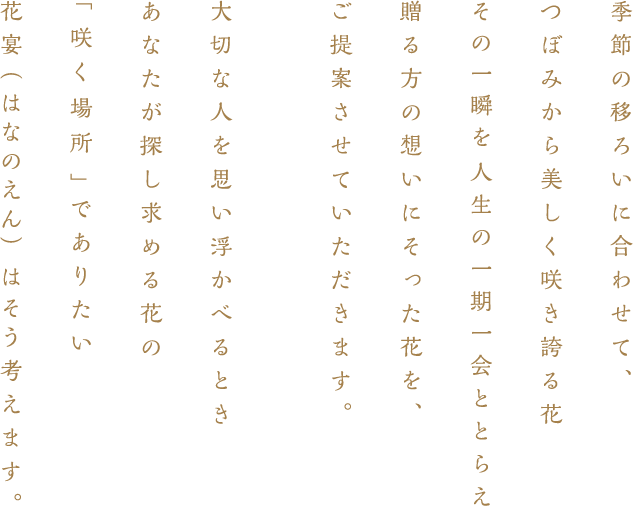 季節の移ろいに合わせて、
つぼみから美しく咲き誇る花
その一瞬を人生の一期一会ととらえ
贈る方の想いにそった花を、
ご提案させていただきます。
大切な人を思い浮かべるとき
あなたが探し求める花の
「咲く場所」でありたい
花宴（はなのえん）はそう考えます。